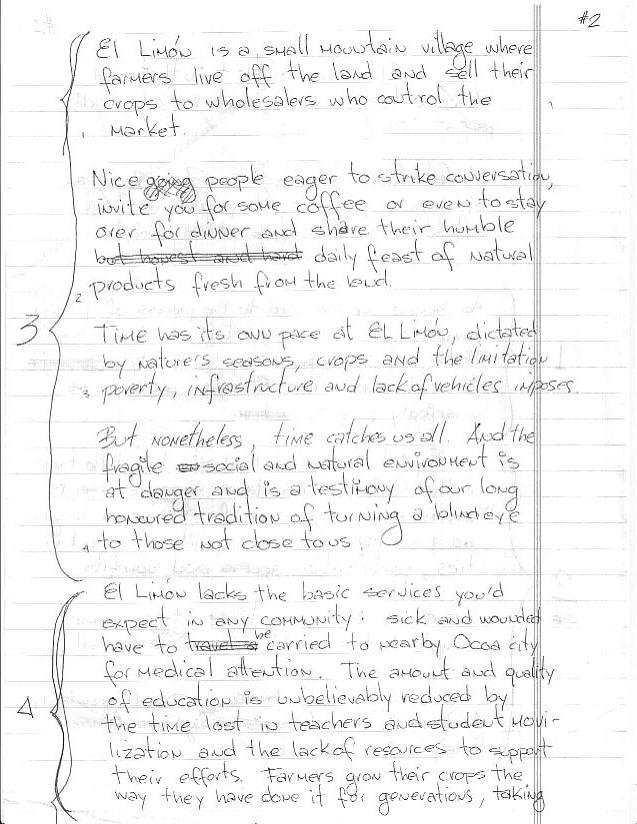 #2
El Limón is a small mountain village where
farmers live off the land and sell their
crops to wholesalers who control the
1 market.
Nice going people eager to strike conversation,
invite you for some coffee or even to stay
over for dinner and share their humble
but honest and hard daily feast of natural
2 products fresh from the land.
3
Time has its own pace at El Limón, dictated
by nature's seasons, crops and the limitation
3 poverty, infrastructure and lack of vehicles imposes.
But nonetheless, time catches us all. And the
fragile social and natural environment is
at danger and is a testimony of our long
honoured tradition of turning a blind eye
4 to those not close to us.
El Limón lacks the basic services you'd
expect in any community: sick and wounded
have to travel be carried to nearby Ocoa city
for medical attention. The amount and quality
4
of education is unbelievably reduced by
the time lost in teachers and student movi-
lization and the lack of resources to support
their efforts. Farmers grow their crops the
way they have done it for generations, taking